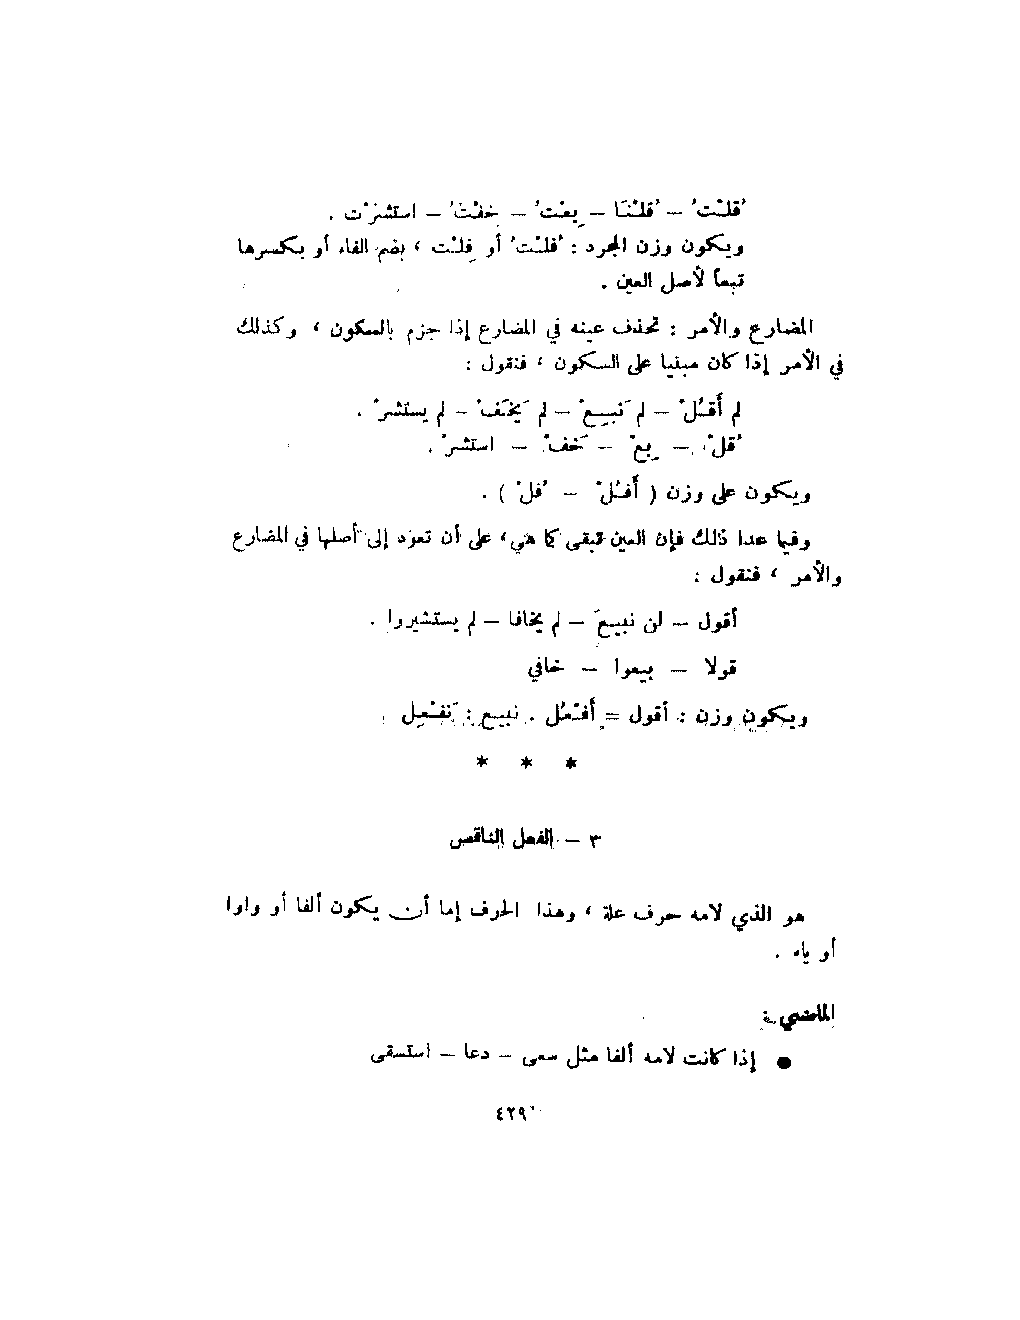 قُلْتُ – قُلْنَا – بِعْتُ – خِفْتُ – استشرْت .
ويكون وزن المجرد : فُلْتُ أو فِلْت ، بضم الفاء أو بكسرها
تبعا لأصل العين .
المضارع والأمر : تحذف عينه في المضارع إذا جزم بالسكون ، وكذلك
في الأمر إذا كان مبنيا على السكون ، فنقول :
لم أَقُلْ – لم نَبِعْ – لم يَخَفْ – لم يستشرْ .
قُلْ – بِعْ – خَفْ – استشرْ .
ويكون على وزن ( أَفُلْ – فُلْ ) .
وفيما عدا ذلك فإن العين تبقى كما هي ، على أن تعود إلى أصلها في المضارع
والأمر ، فنقول :
أقول – لن نبيعَ – لم يخافا – لم يستشيروا .
قولا – بيعوا – خافي
ويكون وزن : أقول = أَفْعُل . نبيع : نَفْعِل
* * *
٣ – الفعل الناقص
هو الذي لامه حرف علة ، وهذا الحرف إما أن يكون ألفا أو واوا
أو ياء .
الماضي :
● إذا كانت لامه ألفا مثل سعى – دعا – استسقى
٤٢٩